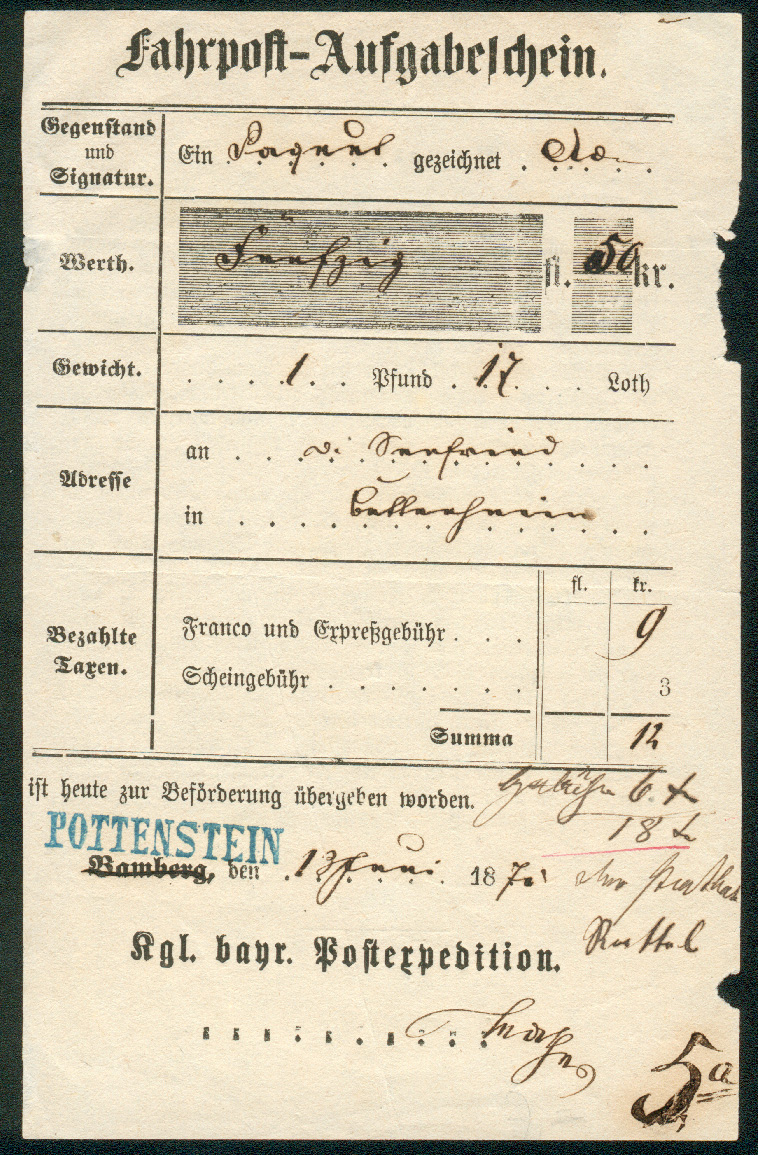 Fahrpost-Aufgabeschein.
Gegenstand
und
Signatur.
Ein Paquet gezeichnet
Werth.
Fünfzig fl. 50 kr.
Gewicht.
1 Pfund 17 Loth
Adresse
an Seefried
in Buttenheim
fl. kr.
Bezahlte
Taxen.
Franco und Expreßgebühr . . . 9
Scheingebühr . . . . . . . 3
Summa 12
ist heute zur Beförderung übergeben worden.
Gebühr 6 x
18 x
POTTENSTEIN
Bamberg, den 12 Juni 187
Kgl. bayr. Postexpedition.
5a